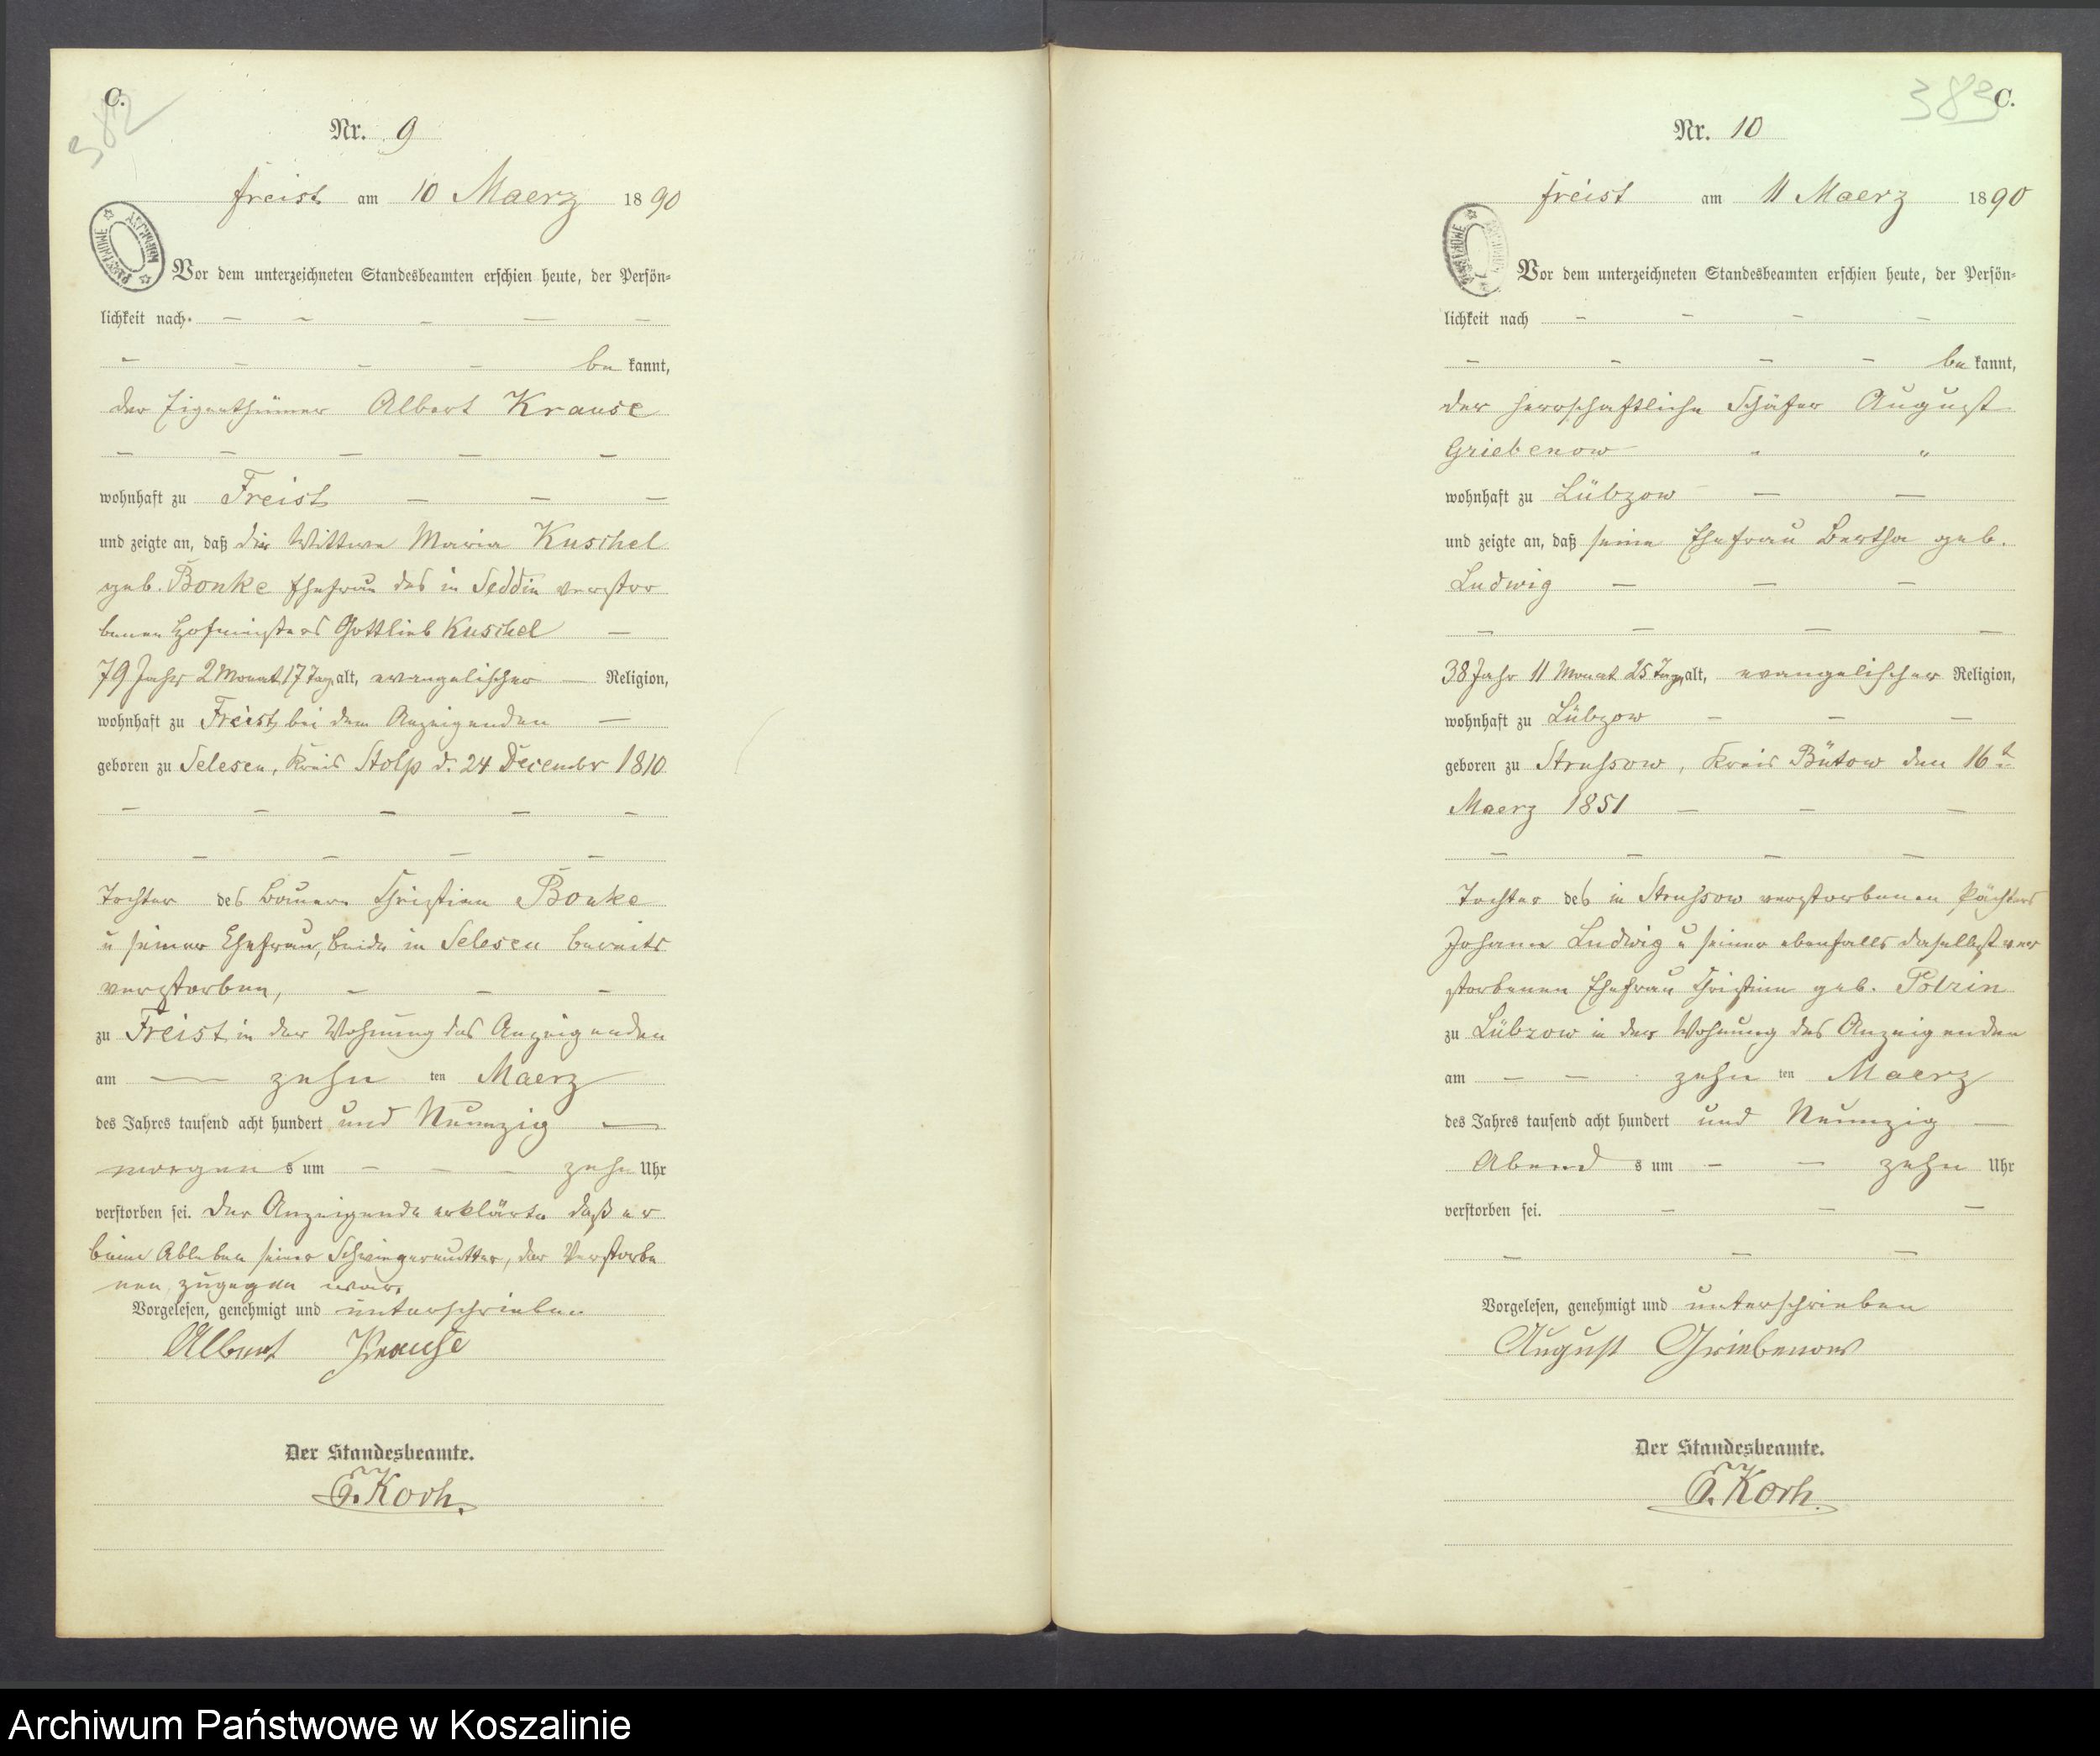 C.
382
Nr. 9
Freist am 10 Maerz 1890
ARCHIWUM PAŃSTWOWE
Vor dem unterzeichneten Standesbeamten erschien heute, der Persön-
lichkeit nach - - - - -
- - - - be kannt,
der Eigenthümer Albert Krause
- - - - -
wohnhaft zu Freist - - -
und zeigte an, daß die Wittwe Maria Kuschel
geb. Bonke Ehefrau des in Seddin verstor
benen Hofmeisters Gottlieb Kuschel -
79 Jahr 2 Monat 17 Tag alt, evangelischer - Religion,
wohnhaft zu Freist, bei dem Anzeigenden -
geboren zu Selesen, Kreis Stolp d. 24 Decembr 1810
- - - - -
- - - -
Tochter des Bauern Christian Bonke
u seiner Ehefrau, beide in Selesen bereits
verstorben, - - -
zu Freist in der Wohnung des Anzeigenden
am - zehn ten Maerz
des Jahres tausend acht hundert und Neunzig -
morgen s um - - - zehn Uhr
verstorben sei. Der Anzeigende erklärte daß er
beim Ableben seiner Schwiegermutter, der Verstorbe
nen, zugegen war.
Vorgelesen, genehmigt und unterschrieben
Albert Krause
Der Standesbeamte.
E. Koch.
383
C.
Nr. 10
Freist am 11 Maerz 1890
ARCHIWUM PAŃSTWOWE
Vor dem unterzeichneten Standesbeamten erschien heute, der Persön-
lichkeit nach - - - -
- - - - be kannt,
der herrschaftliche Schäfer August
Griebenow - " "
wohnhaft zu Lübzow - -
und zeigte an, daß seine Ehefrau Bertha geb.
Ludwig - - -
- - - -
38 Jahr 11 Monat 25 Tage alt, evangelischer Religion,
wohnhaft zu Lübzow - - -
geboren zu Strussow, Kreis Bütow den 16t
Maerz 1851 - - -
- - - -
Tochter des in Strussow verstorbenen Pächters
Johann Ludwig u seiner ebenfalls daselbst ver
storbenen Ehefrau Christine geb.
zu Lübzow in der Wohnung des Anzeigenden
am - - zehn ten Maerz
des Jahres tausend acht hundert und Neunzig -
Abend s um - - zehn Uhr
verstorben sei. - - -
- - -
Vorgelesen, genehmigt und unterschrieben
August Griebenow
Der Standesbeamte.
E. Koch.
Archiwum Państwowe w Koszalinie